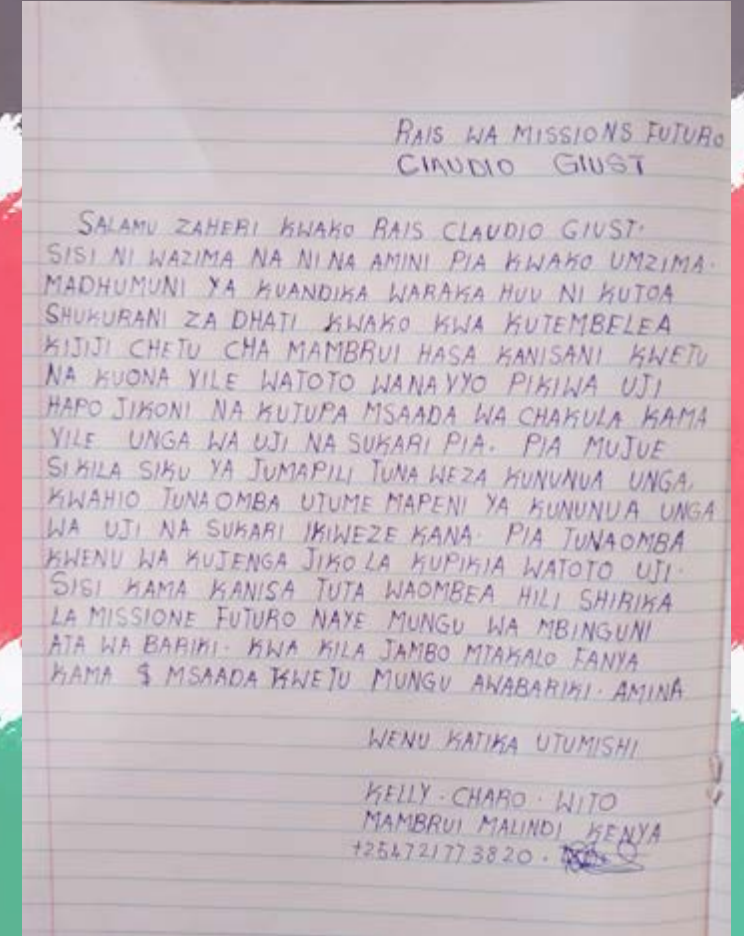 RAIS WA MISSIONS FUTURO
CLAUDIO GIUST
SALAMU ZAHERI KWAKO RAIS CLAUDIO GIUST.
SISI NI WAZIMA NA NI NA AMINI PIA KWAKO UMZIMA.
MADHUMUNI YA KUANDIKA WARAKA HUU NI KUTOA
SHUKURANI ZA DHATI KWAKO KWA KUTEMBELEA
KIJIJI CHETU CHA MAMBRUI HASA KANISANI KWETU
NA KUONA YILE WATOTO WANAVYO PIKIWA UJI
HAPO JIKONI NA KUTUPA MSAADA WA CHAKULA KAMA
YILE UNGA WA UJI NA SUKARI PIA. PIA MUJUE
SI KILA SIKU YA JUMAPILI TUNA WEZA KUNUNUA UNGA.
KWAHIO TUNAOMBA UTUME MAPENI YA KUNUNUA UNGA
WA UJI NA SUKARI IKIWEZE KANA. PIA TUNAOMBA
KWENU WA KUJENGA JIKO LA KUPIKIA WATOTO UJI.
SISI KAMA KANISA TUTA WAOMBEA HILI SHIRIKA
LA MISSIONE FUTURO NAYE MUNGU WA MBINGUNI
ATA WA BARIKI. KWA KILA JAMBO MTAKALO FANYA
KAMA MSAADA KWETU MUNGU AWABARIKI. AMINA
WENU KATIKA UTUMISHI
KELLY. CHARO. WITO
MAMBRUI MALINDI KENYA
+254721773820.